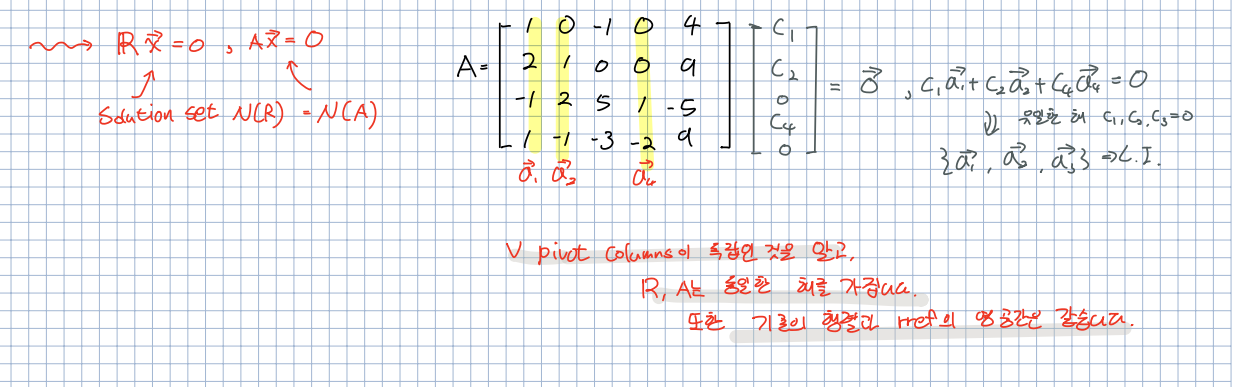 R x⃗ = 0 , A x⃗ = 0
Solution set N(R) = N(A)
A = [ 1 0 -1 0 4
2 1 0 0 9
-1 2 5 1 -5
1 -1 -3 -2 9 ]
[ C₁
C₂
0
C₄
0 ]
= 0⃗ , C₁a⃗₁ + C₂a⃗₂ + C₄a⃗₄ = 0
⇓ 유일한 해 C₁, C₂, C₃=0
{a⃗₁, a⃗₂, a⃗₃} ⇒ L.I.
a⃗₁ a⃗₂ a⃗₄
V pivot columns이 독립인 것을 알고,
R, A는 동일한 해를 가집니다.
또한 기존의 행렬과 rref의 영공간은 같습니다.